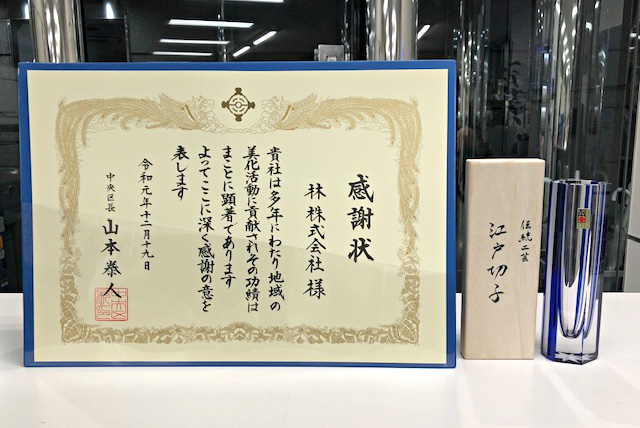 感謝状
林株式会社様
貴社は多年にわたり地域の
美化活動に貢献されその功績は
まことに顕著であります
よってここに深く感謝の意を
表します
令和元年十二月十九日
中央区長 山本泰人
伝統工芸
江戸切子